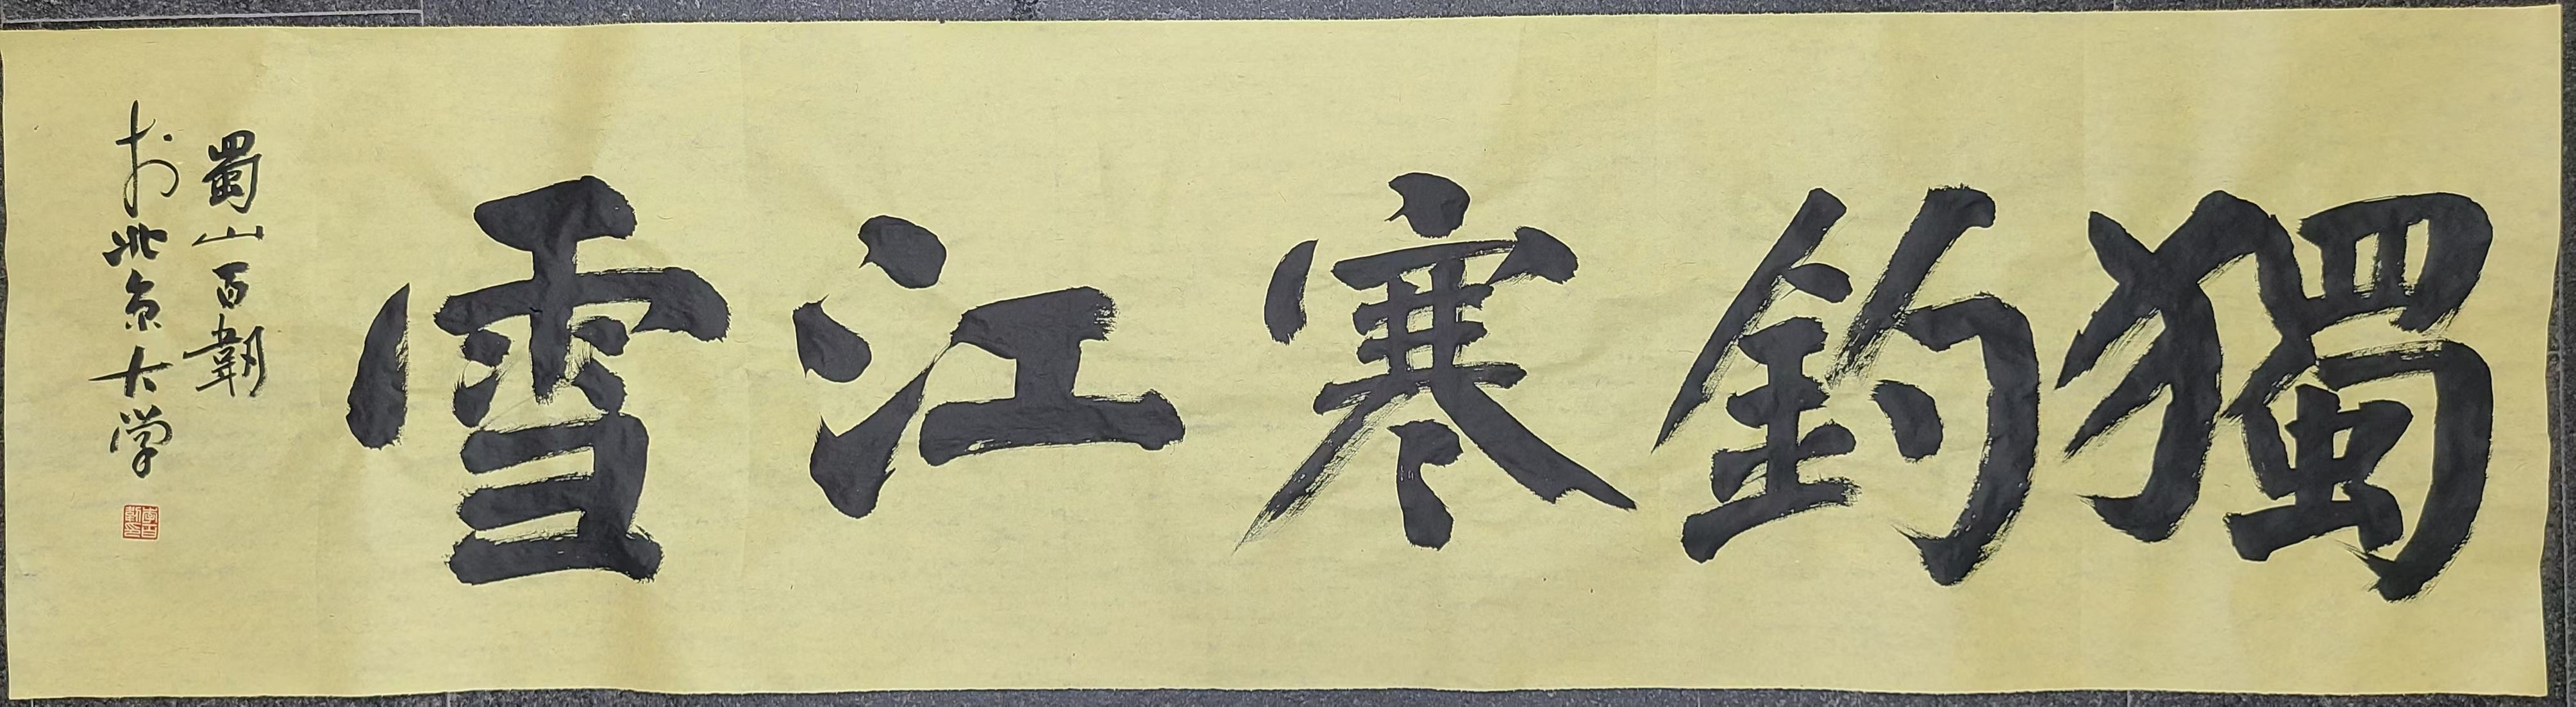 獨釣寒江雪
蜀山百韌
於北京大学